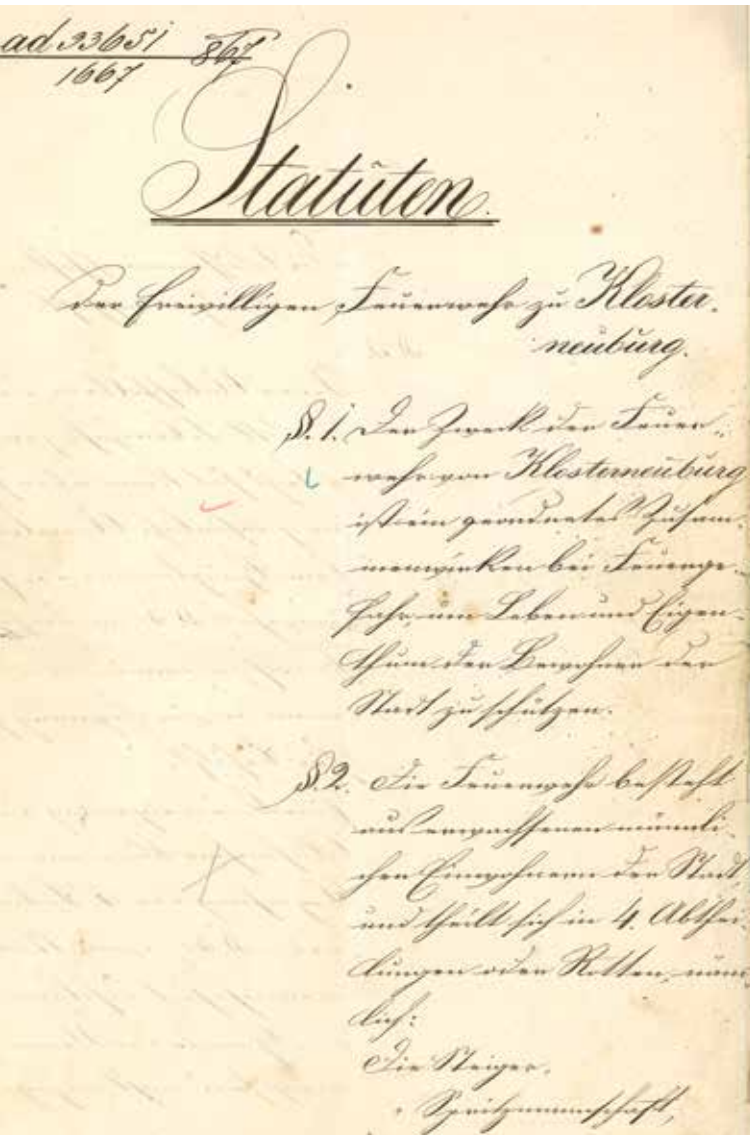 ad 33651 867
1667
Statuten.
der freiwilligen Feuerwehr zu Kloster-
neuburg.
§. 1. Der Zweck der Feuer-
wehr von Klosterneuburg
ist ein geordnetes Zusam-
menwirken bei Feuerge-
fahr, um Leben und Eigen-
thum der Bewohner der
Stadt zu schützen.
§. 2. Die Feuerwehr besteht
aus erwachsenen männli-
chen Einwohnern der Stadt,
und theilt sich in 4. Abthei-
lungen oder Rotten, näm-
lich:
Die Steiger.
" Spritzmannschaft,